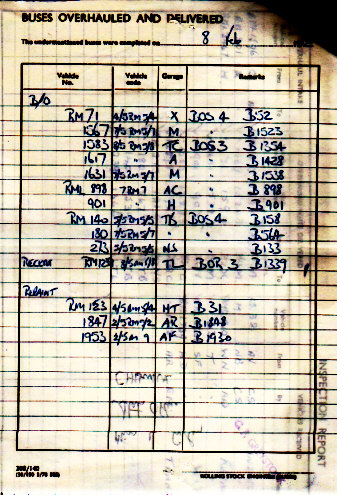 BUSES OVERHAULED AND DELIVERED
The undermentioned buses were completed on 8 Feb
Vehicle No. Vehicle code Garage Remarks
B/O
RM 71 4/5RM5/4 X BOS 4 B52
1567 7/5RM5/7 M " B1523
1583 8/5RM5/8 TC BOS 3 B1354
1617 " A " B1428
1631 7/5RM5/7 M " B1538
RML 898 7RM7 AC " B898
901 " H " B901
RM 140 5/5RM5/5 TB BOS 4 B158
180 7/5RM5/7 " " B564
213 5/5RM5/5 NS " B133
RM TL BOR 3 B1339
REPAINT
RM 123 4/5RM5/4 HT B31
1847 2/5RM5/2 AR B1848
1953 2/5RM 9 AF B1930
INSPECTION REPORT
ROLLING STOCK